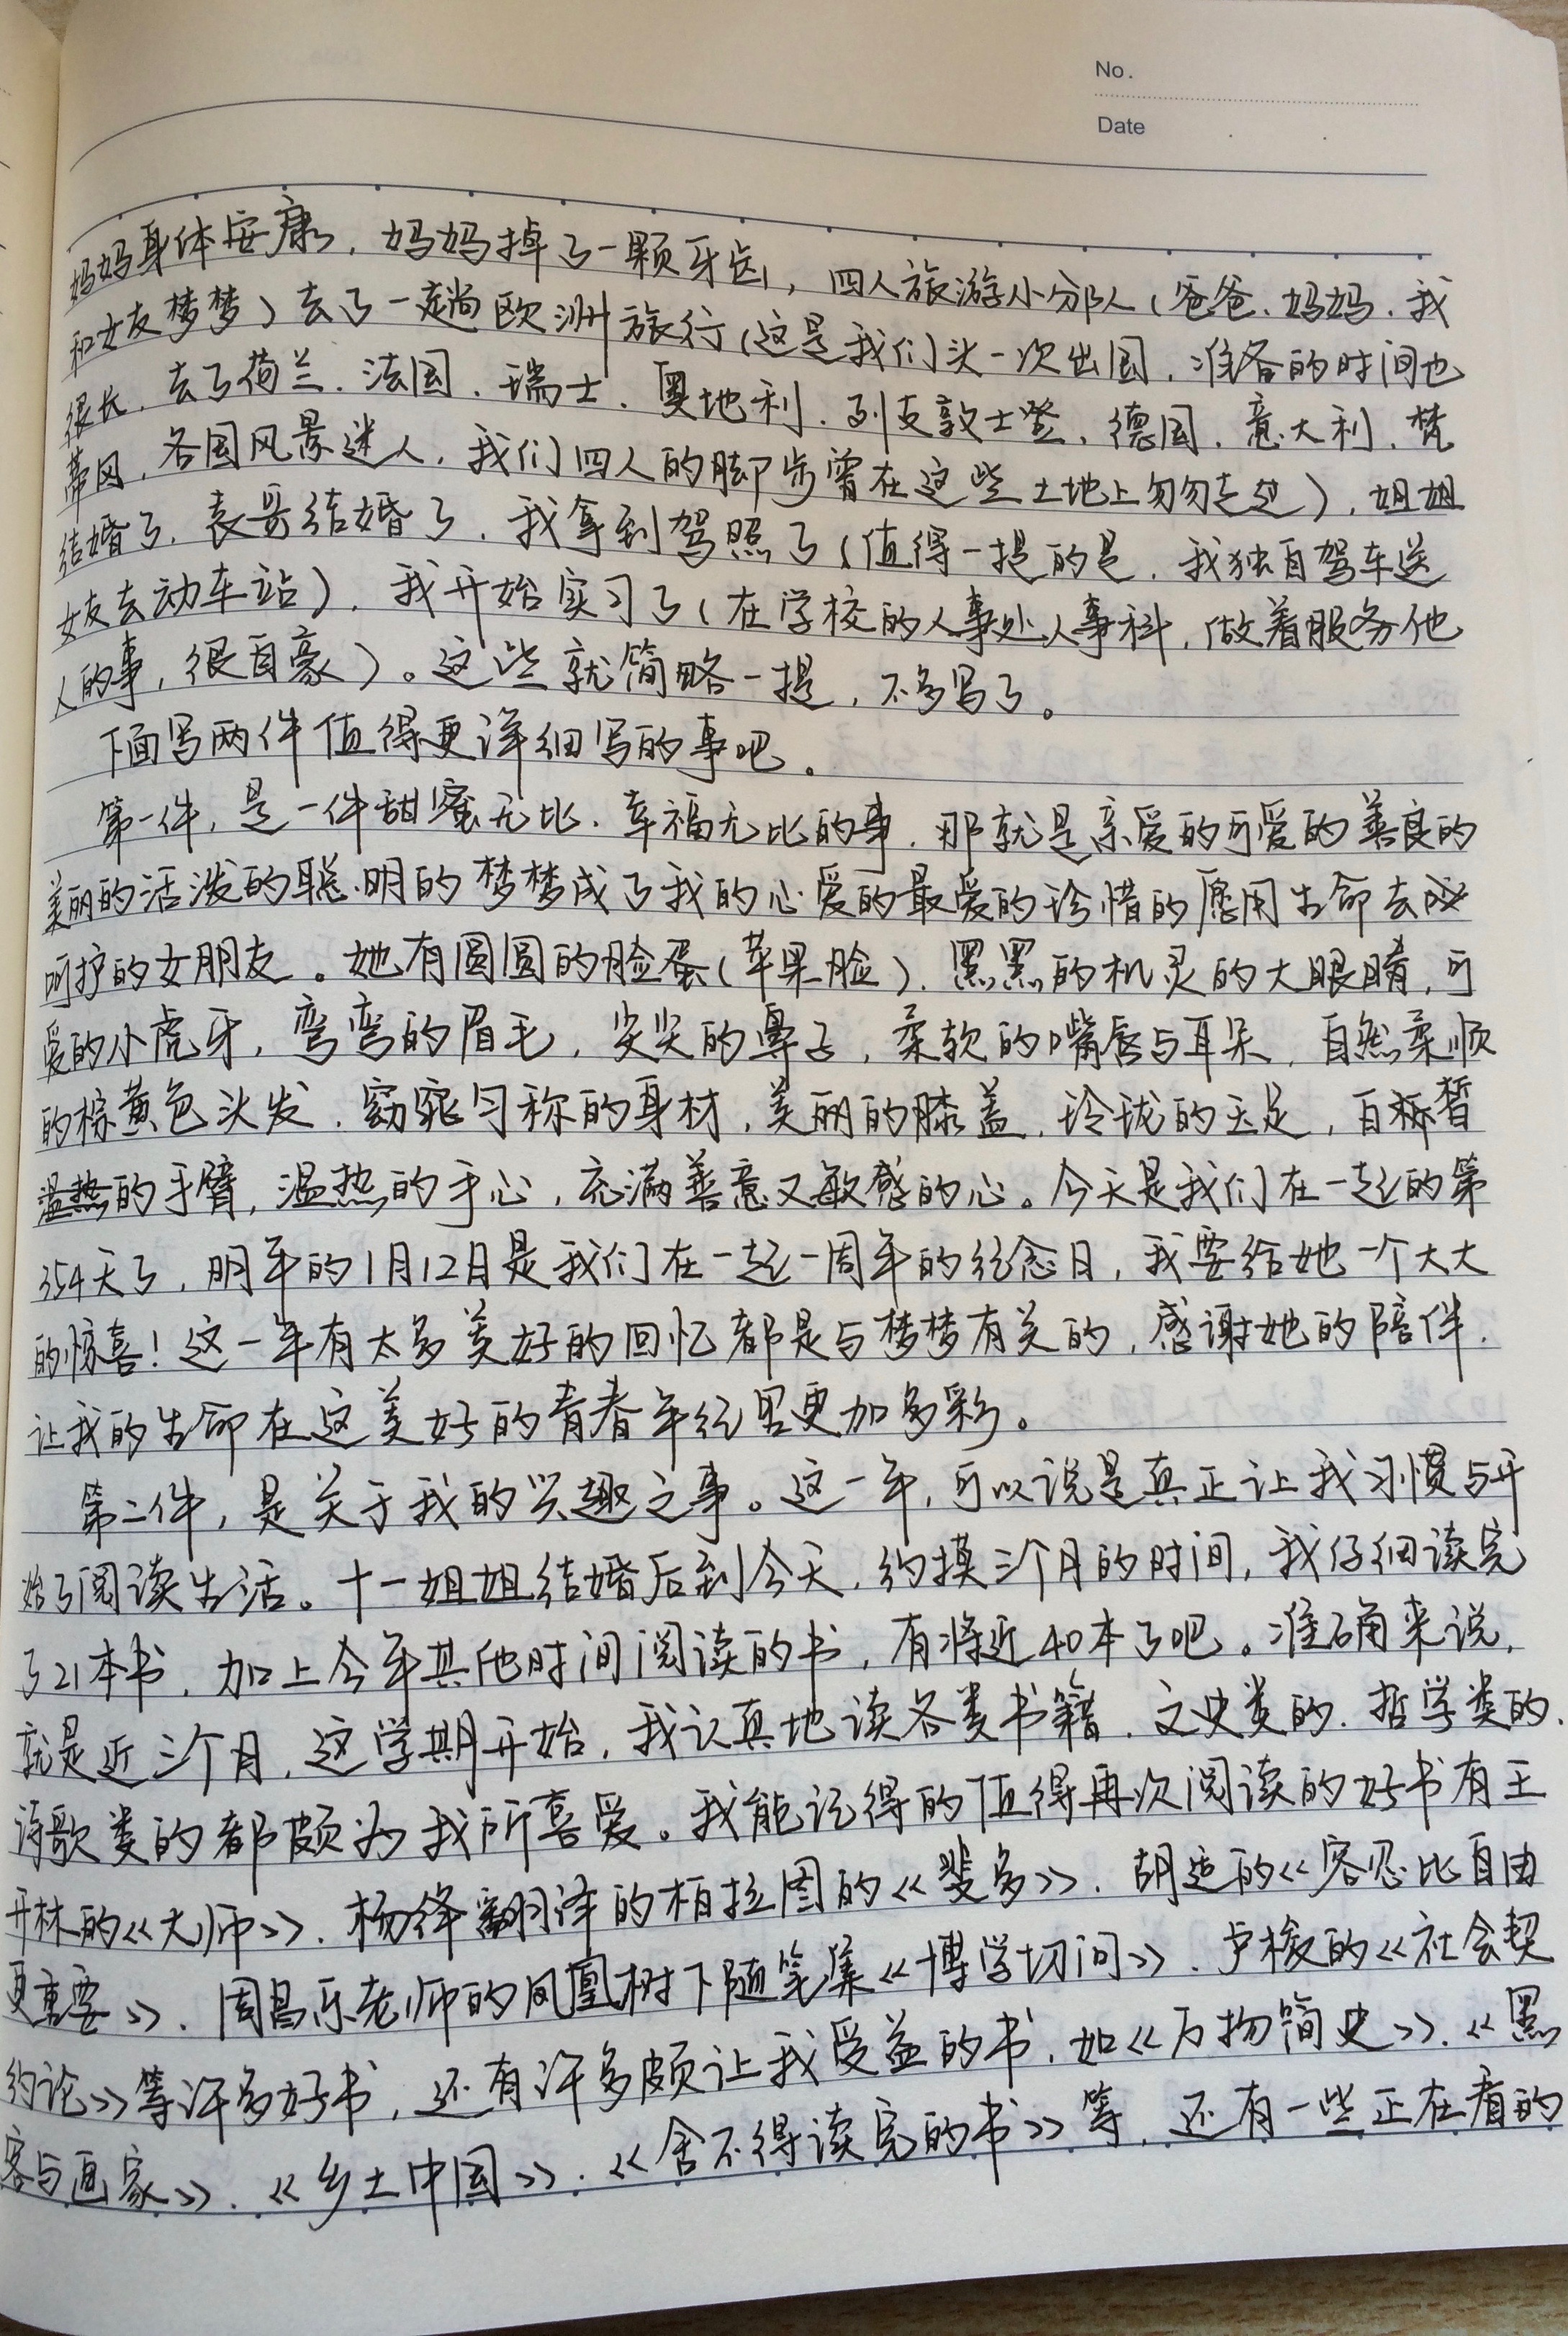 No.
Date
妈妈身体安康,妈妈掉了一颗牙齿,四人旅游小分队(爸爸、妈妈、我
和女友梦梦)去了一趟欧洲旅行(这是我们头一次出国,准备的时间也
很长,去了荷兰、法国、瑞士、奥地利、列支敦士登、德国、意大利、梵
蒂冈,各国风景迷人,我们四人的脚步曾在这些土地上匆匆走过),姐姐
结婚了,表哥结婚了,我拿到驾照了(值得一提的是,我独自驾车送
女友去动车站),我开始实习了(在学校的人事处人事科,做着服务他
人的事,很自豪)。这些就简略一提,不多写了。
下面写两件值得更详细写的事吧。
第一件,是一件甜蜜无比、幸福无比的事,那就是亲爱的可爱的善良的
美丽的活泼的聪明的梦梦成了我的心爱的最爱的珍惜的愿用生命去
呵护的女朋友。她有圆圆的脸蛋(苹果脸),黑黑的机灵的大眼睛,可
爱的小虎牙,弯弯的眉毛,尖尖的鼻子,柔软的嘴唇与耳朵,自然柔顺
的棕黄色头发,窈窕匀称的身材,美丽的膝盖,玲珑的玉足,白皙
温热的手臂,温热的手心,充满善意又敏感的心。今天是我们在一起的第
354天了,明年的1月12日是我们在一起一周年的纪念日,我要给她一个大大
的惊喜!这一年有太多美好的回忆都是与梦梦有关的,感谢她的陪伴,
让我的生命在这美好的青春年纪里更加多彩。
第二件,是关于我的兴趣之事。这一年,可以说是真正让我习惯与开
始了阅读生活。十一姐姐结婚后到今天,约摸三个月的时间,我仔细读完
了21本书,加上今年其他时间阅读的书,有将近40本了吧。准确来说,
就是近三个月,这学期开始,我认真地读各类书籍,文史类的、哲学类的、
诗歌类的都颇为我所喜爱。我能记得的值得再次阅读的好书有王
开林的《大师》、杨绛翻译的柏拉图的《斐多》、胡适的《容忍比自由
更重要》、周昌乐老师的凤凰树下随笔集《博学切问》、卢梭的《社会契
约论》等许多好书,还有许多颇让我受益的书,如《万物简史》、《黑
客与画家》、《乡土中国》、《舍不得读完的书》等,还有一些正在看的